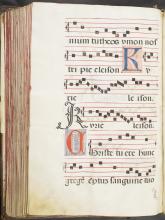 nium tuitheos ymon nos
tri pie eleison. Ky
rie leison.
Kyrie leison.
Christe tu ere hunc
grege eptus sanguine tuo